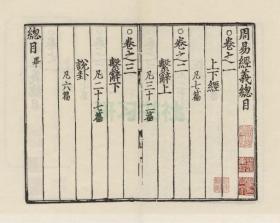 周易經義總目
○卷之一
上下經
凡七篇
○卷之二
繫辭上
凡三十二篇
○卷之三
繫辭下
凡二十七篇
說卦
凡六篇
總目畢